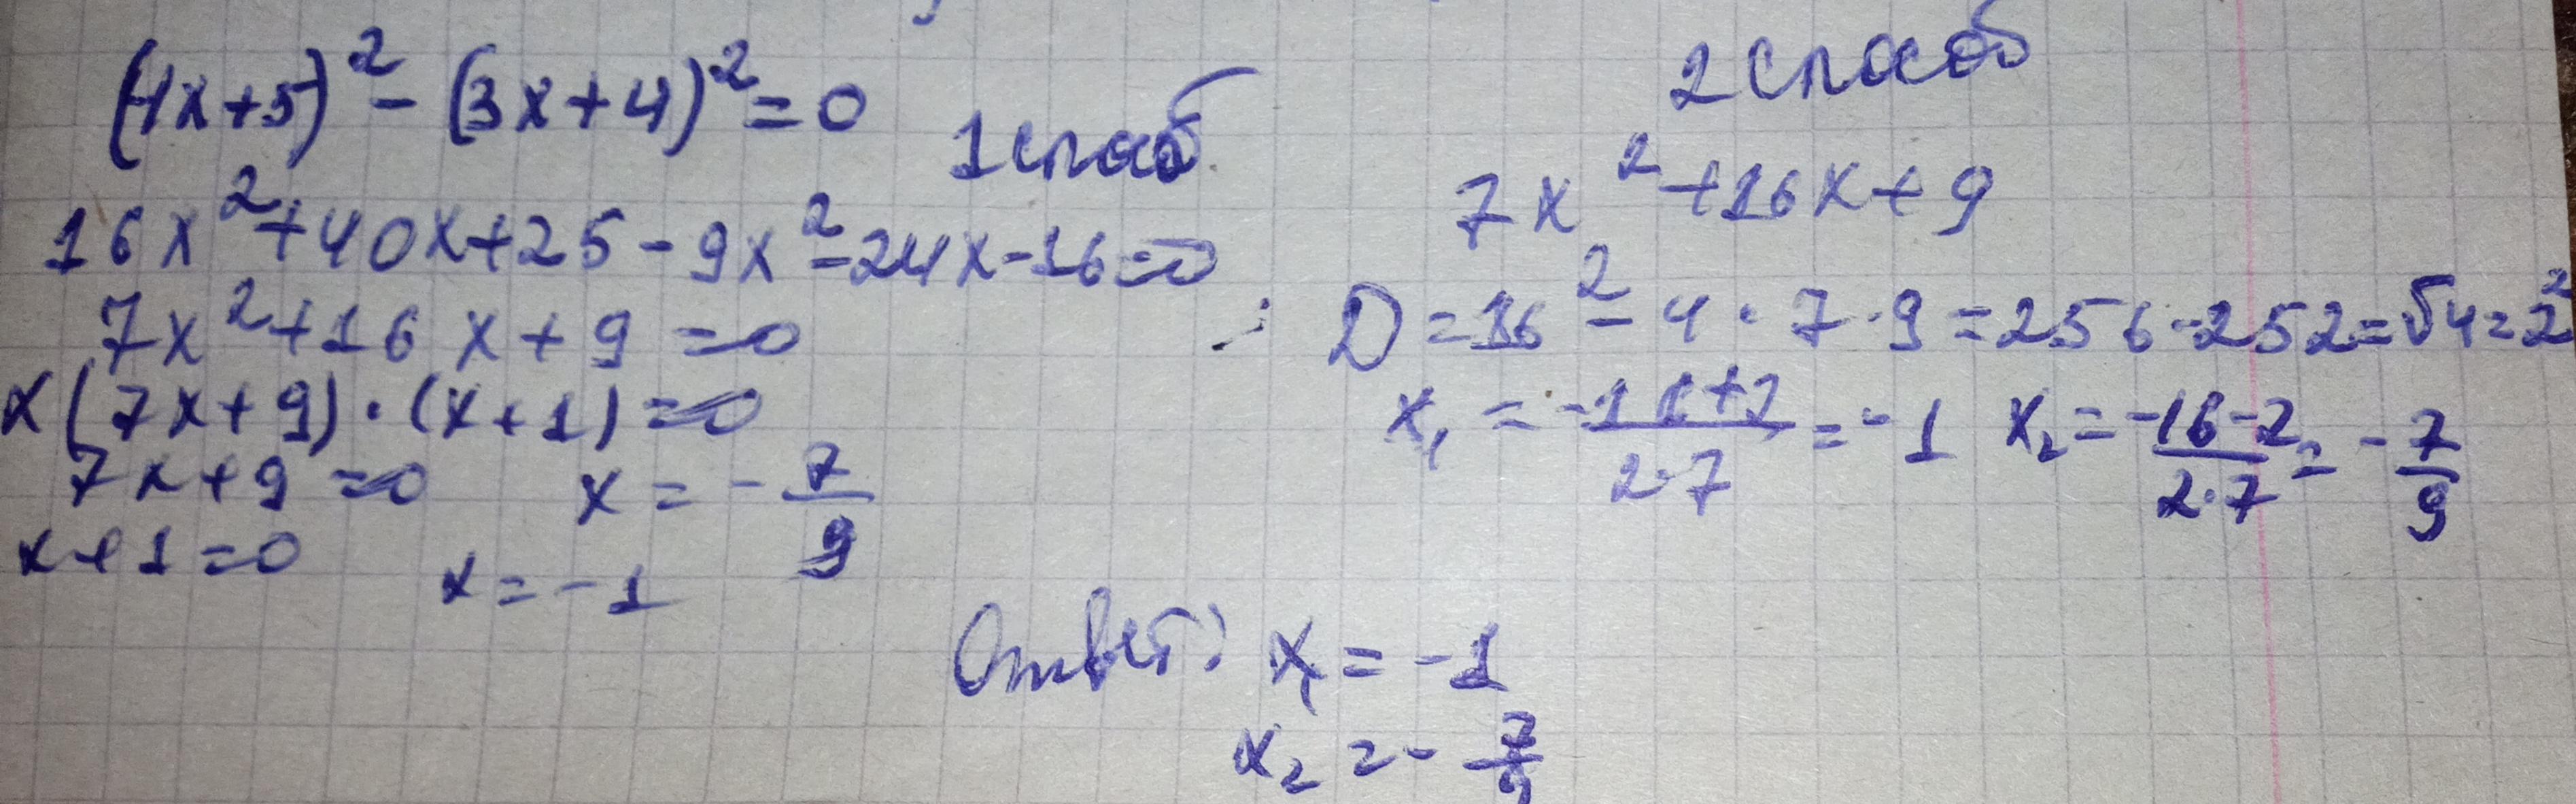 (4x+5)² - (3x+4)² = 0
1 способ
16x²+40x+25-9x²-24x-16=0
7x²+16x+9=0
x(7x+9)·(x+1)=0
7x+9=0 x=-7/9
x+1=0 x=-1
2 способ
7x²+16x+9
D=16²-4·7·9=256-252=√4=2²
x₁=(-16+2)/(2·7)=-1 x₂=(-16-2)/(2·7)=-7/9
Ответ: x₁=-1
x₂=-7/9